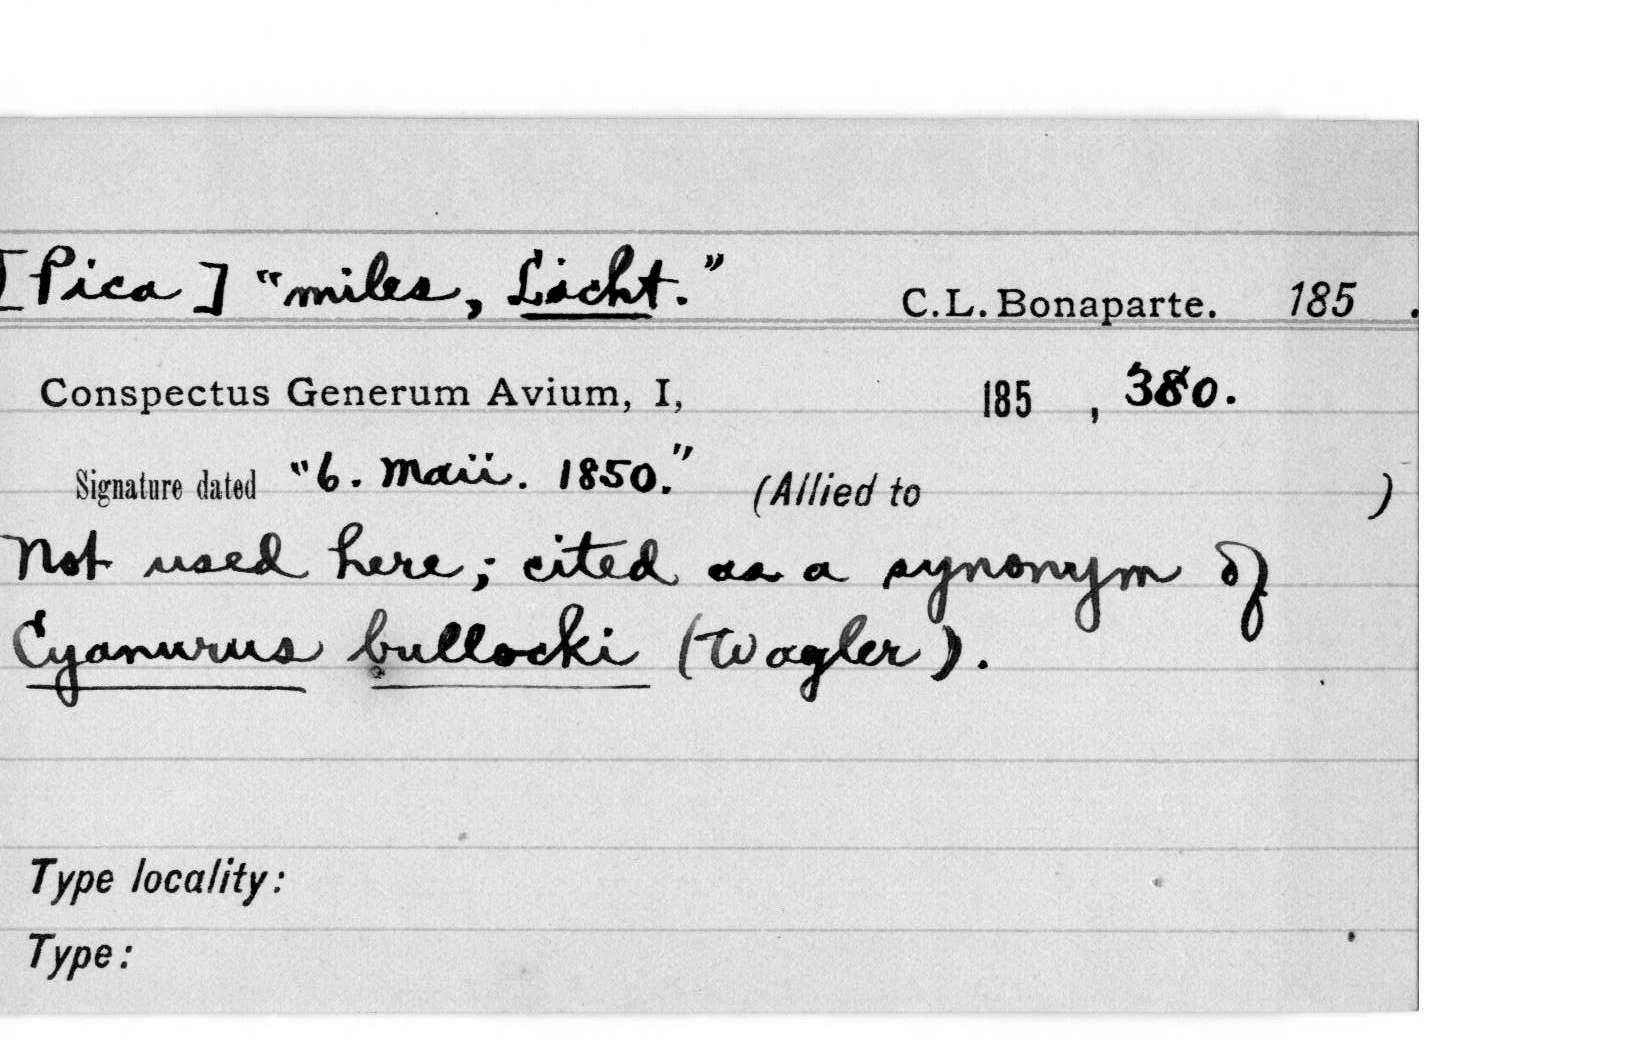 [Pica] "miles, Licht." C.L. Bonaparte. 185 .
Conspectus Generum Avium, I, 185 , 380.
Signature dated "6. Maii. 1850." (Allied to )
Not used here; cited as a synonym of
Cyanurus bullocki (Wagler).
Type locality:
Type: